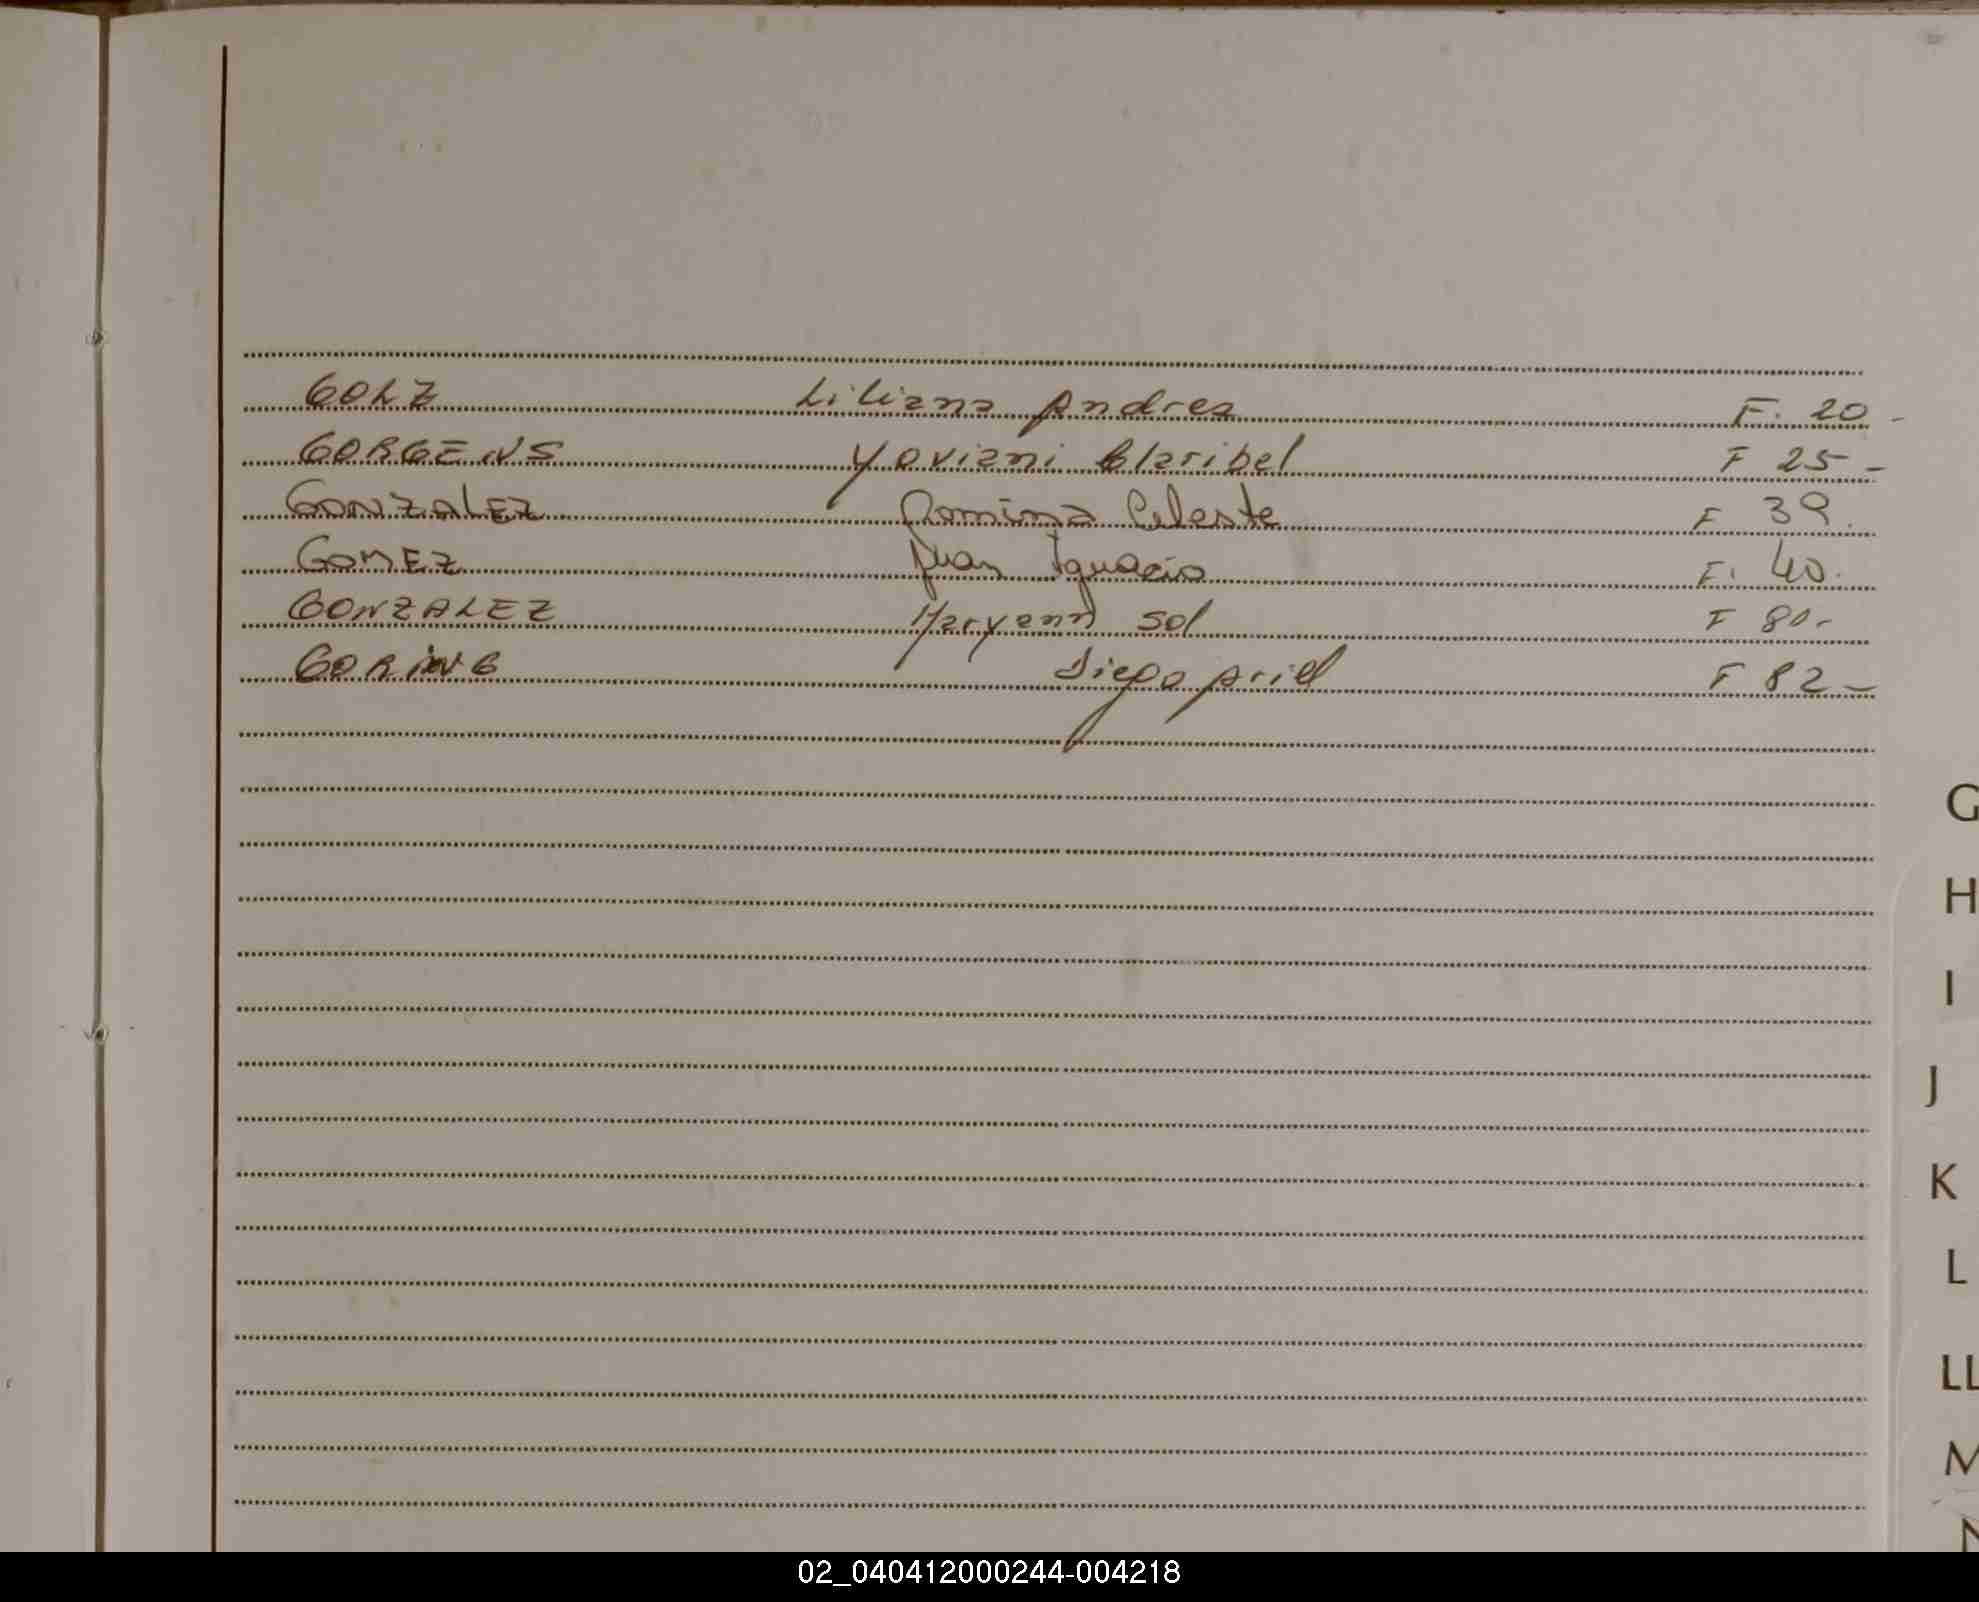 GOLZ Liliana Andrea F. 20-
GORGENS Yoviani Claribel F 25-
GONZALEZ Romina Celeste F 39.
GOMEZ Juan Ignacio F. 40.
GONZALEZ Maryann Sol F 80.-
GORING Diego Ariel F 82-
G
H
I
J
K
L
LL
M
N
02_040412000244-004218